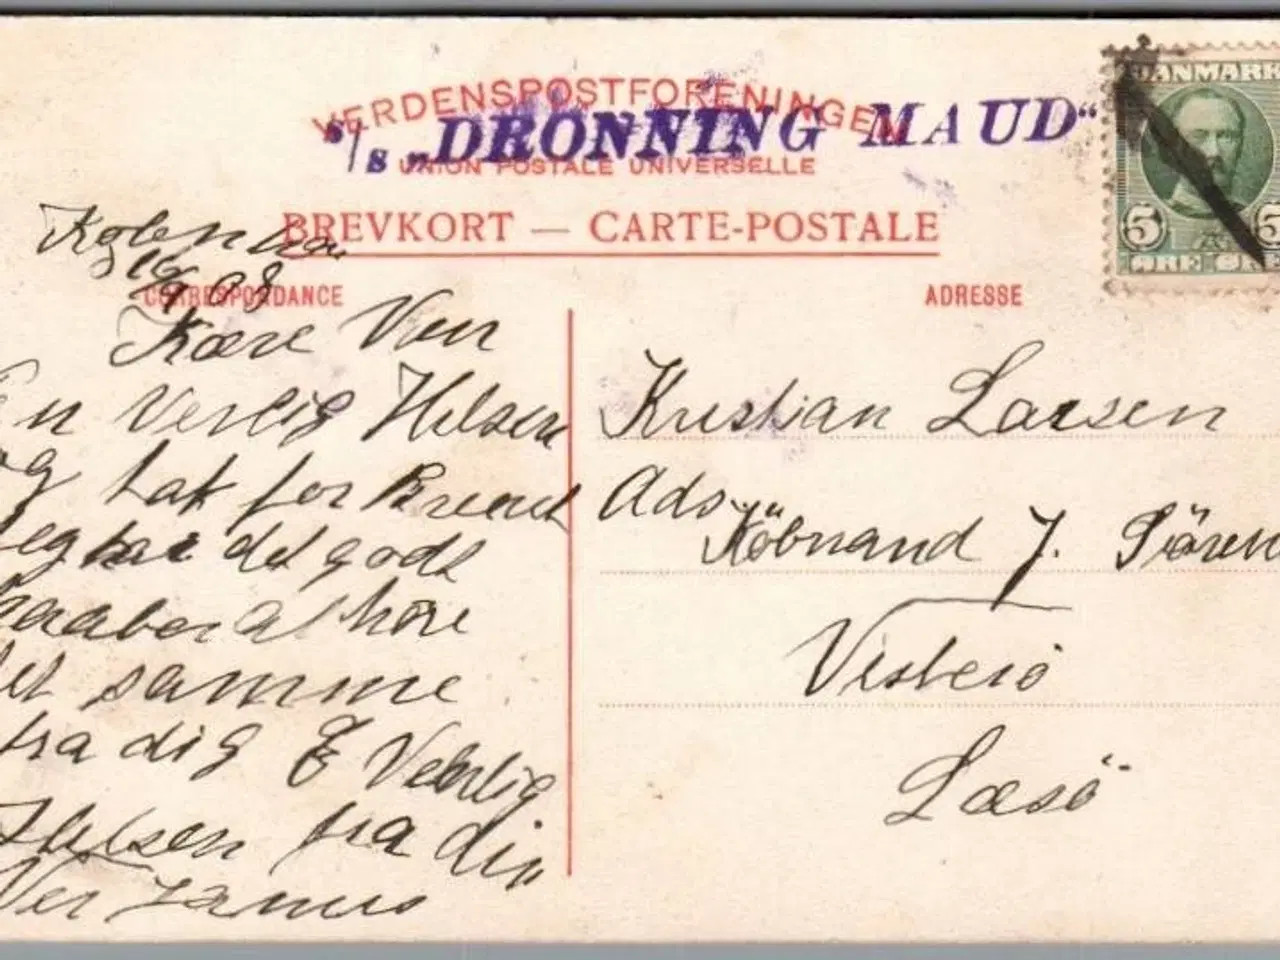 VERDENSPOSTFORENINGEN
S/S „DRONNING MAUD“
UNION POSTALE UNIVERSELLE
BREVKORT — CARTE-POSTALE
DANMARK
5 5
ØRE ØRE
Københav
16/ 08
CORRESPONDANCE
Kære Ven
En Venlig Hilsen
og tak for Brevet
Jeg har det godt
haaber at höre
det samme
fra dig & Venlig
Hilsen fra din
Ven
ADRESSE
Kristian Larsen
Ads
Köbmand J. Sören
Vesterö
Læsö